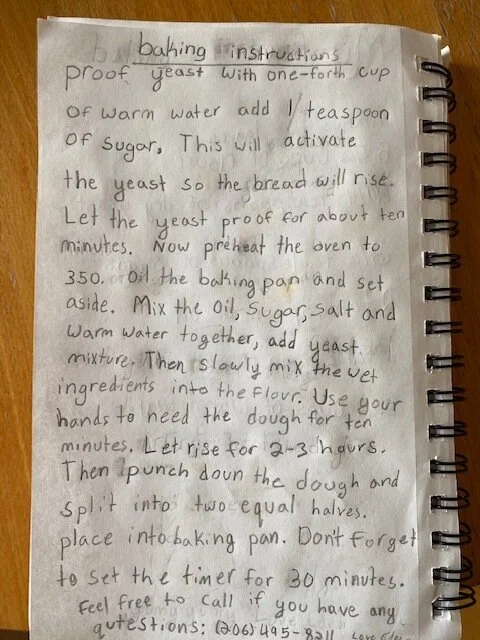 baking instructions
proof yeast with one-forth cup
of warm water add 1 teaspoon
of sugar. This will activate
the yeast so the bread will rise.
Let the yeast proof for about ten
minutes. Now preheat the oven to
350. Oil the baking pan and set
aside. Mix the Oil, Sugar, Salt and
warm water together, add yeast
mixture. Then slowly mix the wet
ingredients into the flour. Use your
hands to need the dough for ten
minutes. Let rise for 2-3 hours.
Then punch down the dough and
split into two equal halves.
place into baking pan. Don't forget
to set the timer for 30 minutes.
Feel free to call if you have any
qutestions: (206) 495-